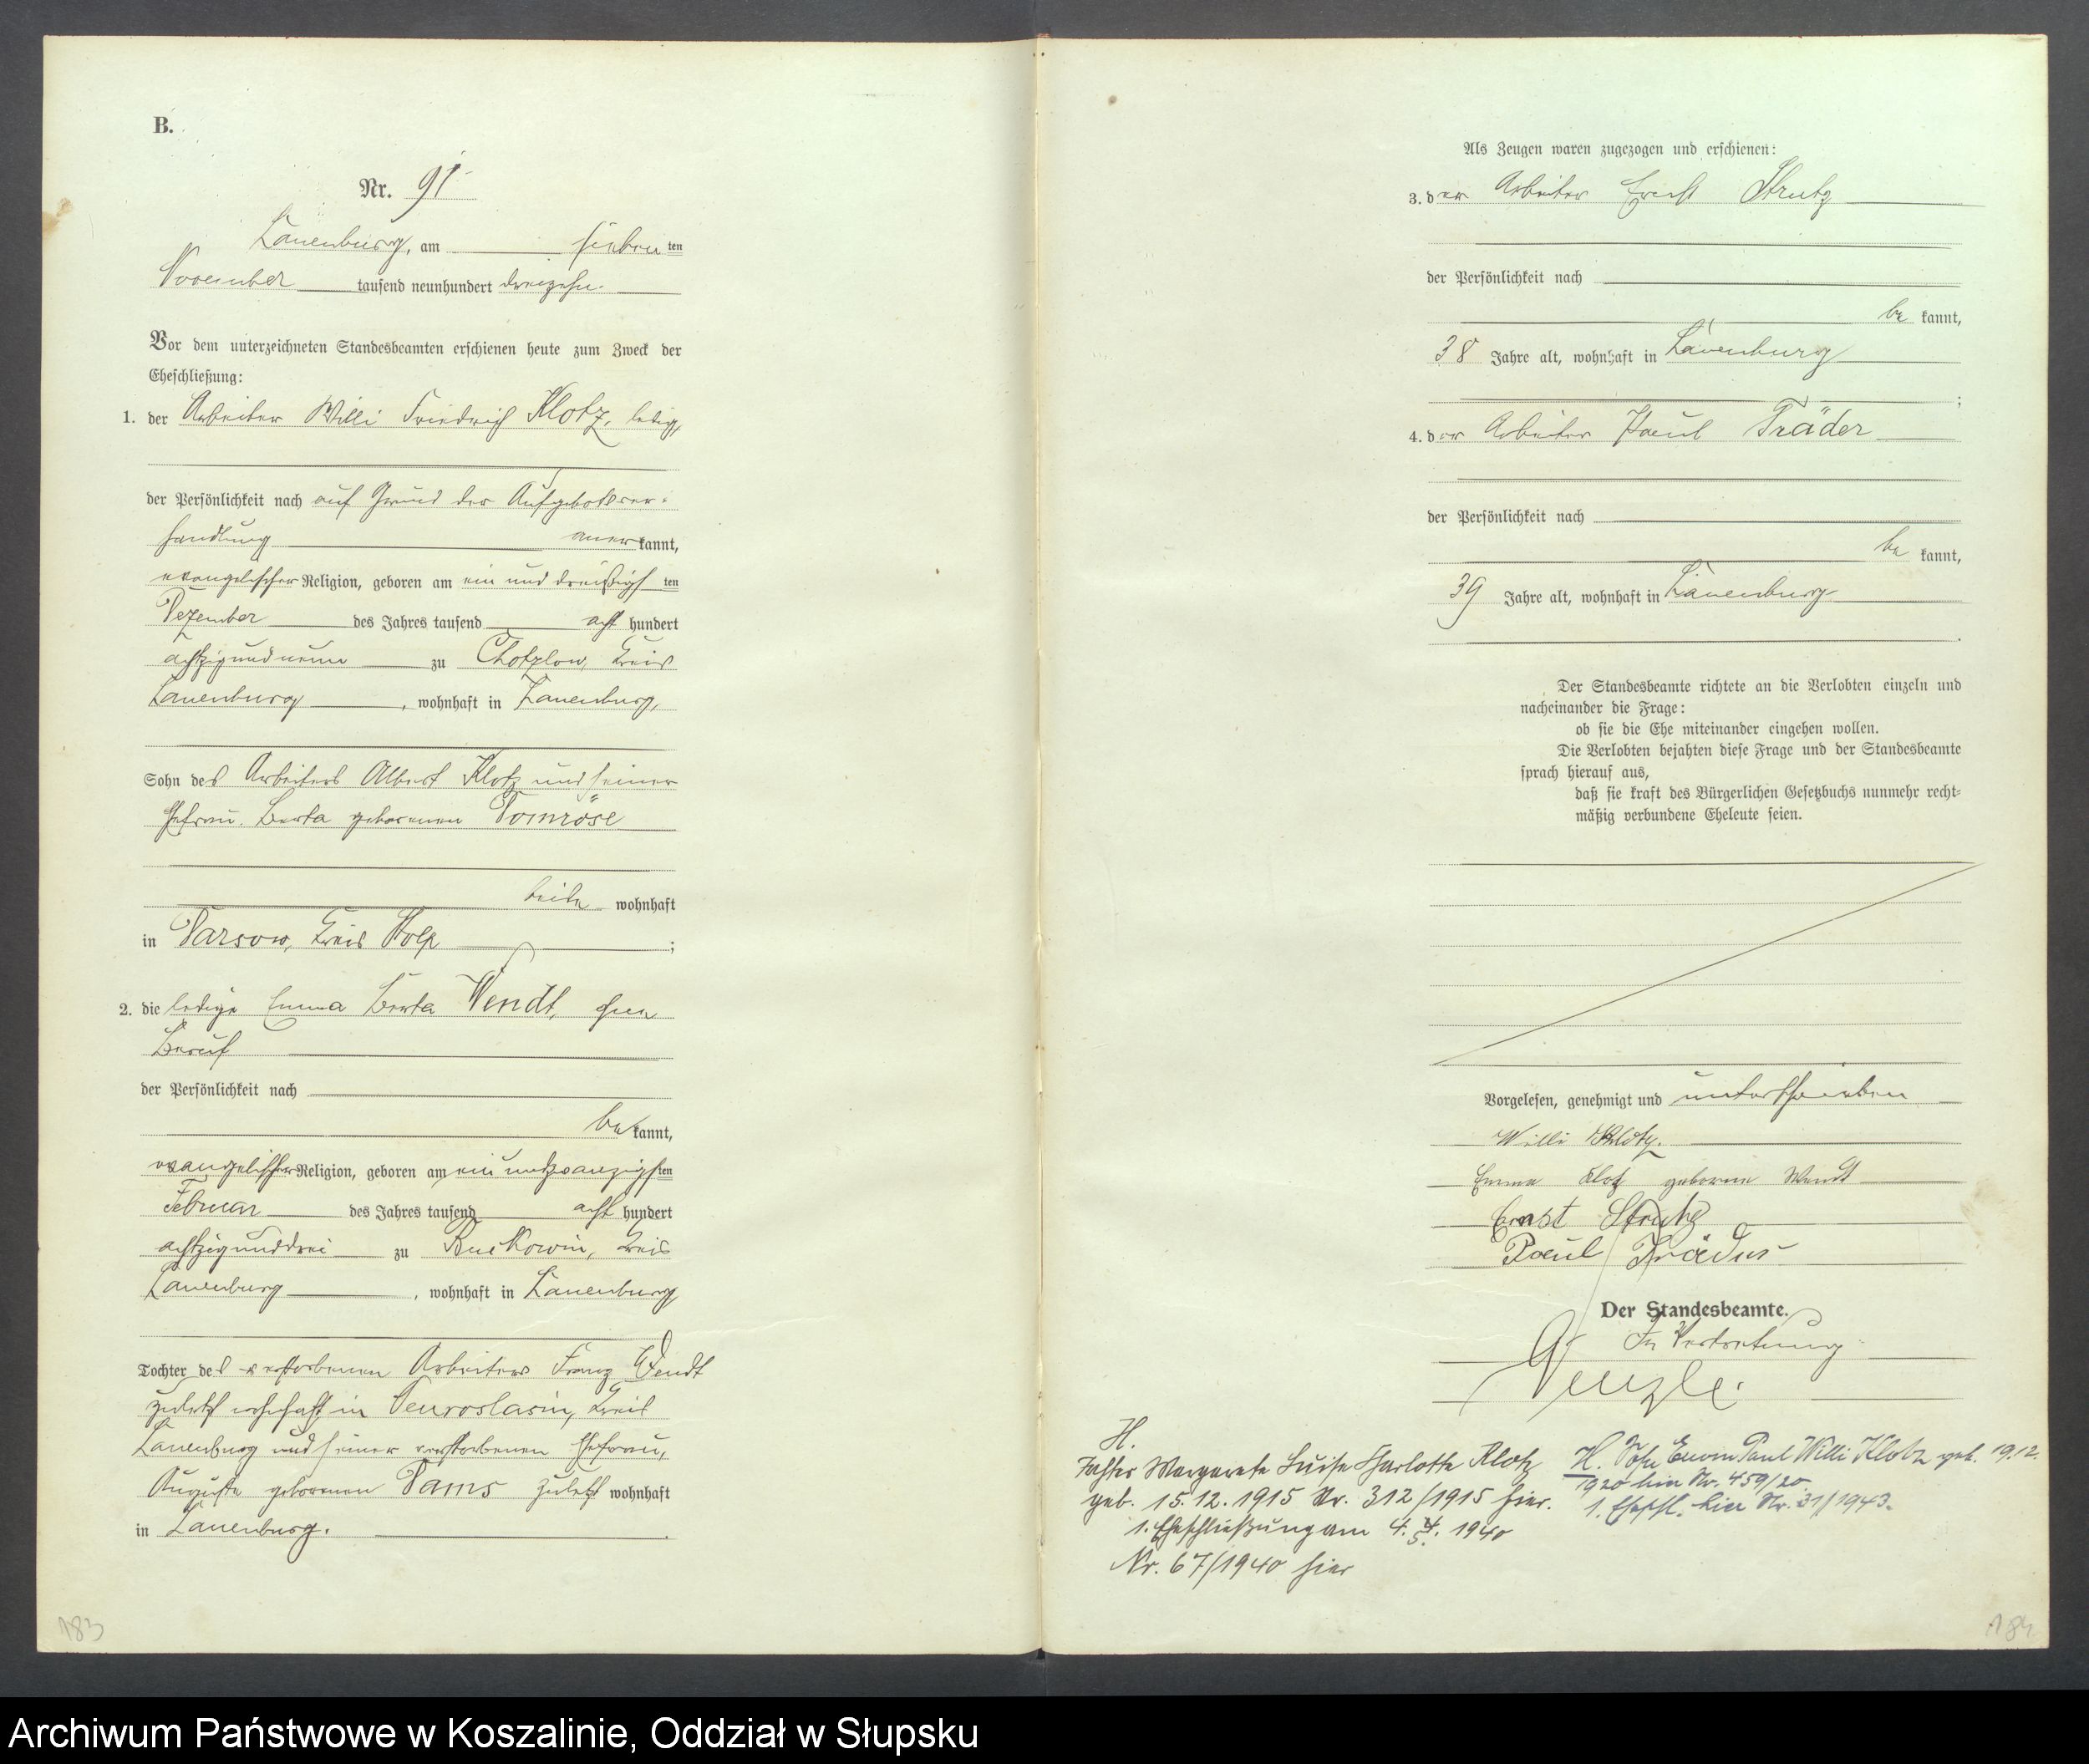 B.
Nr. 91
Lauenburg, am siebenten
November tausend neunhundert dreizehn.
Vor dem unterzeichneten Standesbeamten erschienen heute zum Zweck der
Eheschließung:
1. der Arbeiter Willi Friedrich Klotz, ledig,
der Persönlichkeit nach auf Grund der Aufgebotsver-
handlung anerkannt,
evangelischer Religion, geboren am ein und dreißigsten
Dezember des Jahres tausend acht hundert
achtzigundneun zu Chotzlow, Kreis
Lauenburg, wohnhaft in Lauenburg,
Sohn des Arbeiters Albert Klotz und seiner
Ehefrau Berta geborenen Pomröse
beide wohnhaft
in Darsow, Kreis Stolp;
2. die ledige Emma Berta Wendt, ohne
Beruf
der Persönlichkeit nach
bekannt,
evangelischer Religion, geboren am ein und zwanzigsten
Februar des Jahres tausend acht hundert
achtzigunddrei zu Buckowin, Kreis
Lauenburg, wohnhaft in Lauenburg
Tochter des verstorbenen Arbeiters Franz Wendt
zuletzt wohnhaft in Kreis
Lauenburg und seiner verstorbenen Ehefrau,
Auguste geborenen zuletzt wohnhaft
in Lauenburg.
183
Als Zeugen waren zugezogen und erschienen:
3. der Arbeiter Ernst Strutz
der Persönlichkeit nach
bekannt,
38 Jahre alt, wohnhaft in Lauenburg
;
4. der Arbeiter Paul Träder
der Persönlichkeit nach
bekannt,
39 Jahre alt, wohnhaft in Lauenburg
.
Der Standesbeamte richtete an die Verlobten einzeln und
nacheinander die Frage:
ob sie die Ehe miteinander eingehen wollen.
Die Verlobten bejahten diese Frage und der Standesbeamte
sprach hierauf aus,
daß sie kraft des Bürgerlichen Gesetzbuchs nunmehr recht-
mäßig verbundene Eheleute seien.
Vorgelesen, genehmigt und unterschrieben
Willi Klotz.
Emma Klotz geborene Wendt
Ernst Strutz
Paul Träder
Der Standesbeamte.
In Vertretung
H.
Tochter Margarete Luise Charlotte Klotz
geb. 15.12.1915 Nr. 312/1915 hier.
1. Eheschließung am 4. 5. 1940
Nr. 67/1940 hier
H. Sohn Erwin Paul Willi Klotz geb. 19.12.
1920 hier Nr. 459/20.
1. Eheschl. hier Nr. 31/1943.
184
Archiwum Państwowe w Koszalinie, Oddział w Słupsku